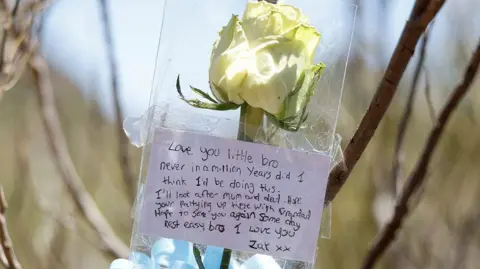 Love you little bro
never in a million Years did I
think I'd be doing this.
I'll look after mum and dad. Hope
your partying up there with Grandad
Hope to see you again some day
Rest easy bro I love you
Zak xx